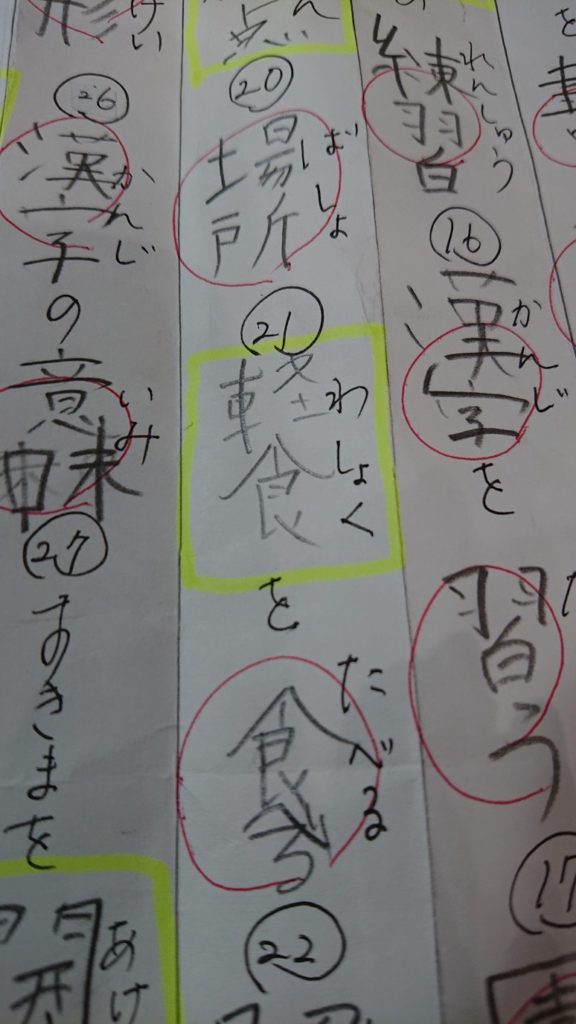 を
練習
れんしゅう
16
漢字を
かんじ
習う
17
点
20
場所
ばしょ
21
軽食を
わしょく
食る
たべる
22
形
けい
26
漢字の意味
かんじ
いみ
27
すきまを
開
あけ